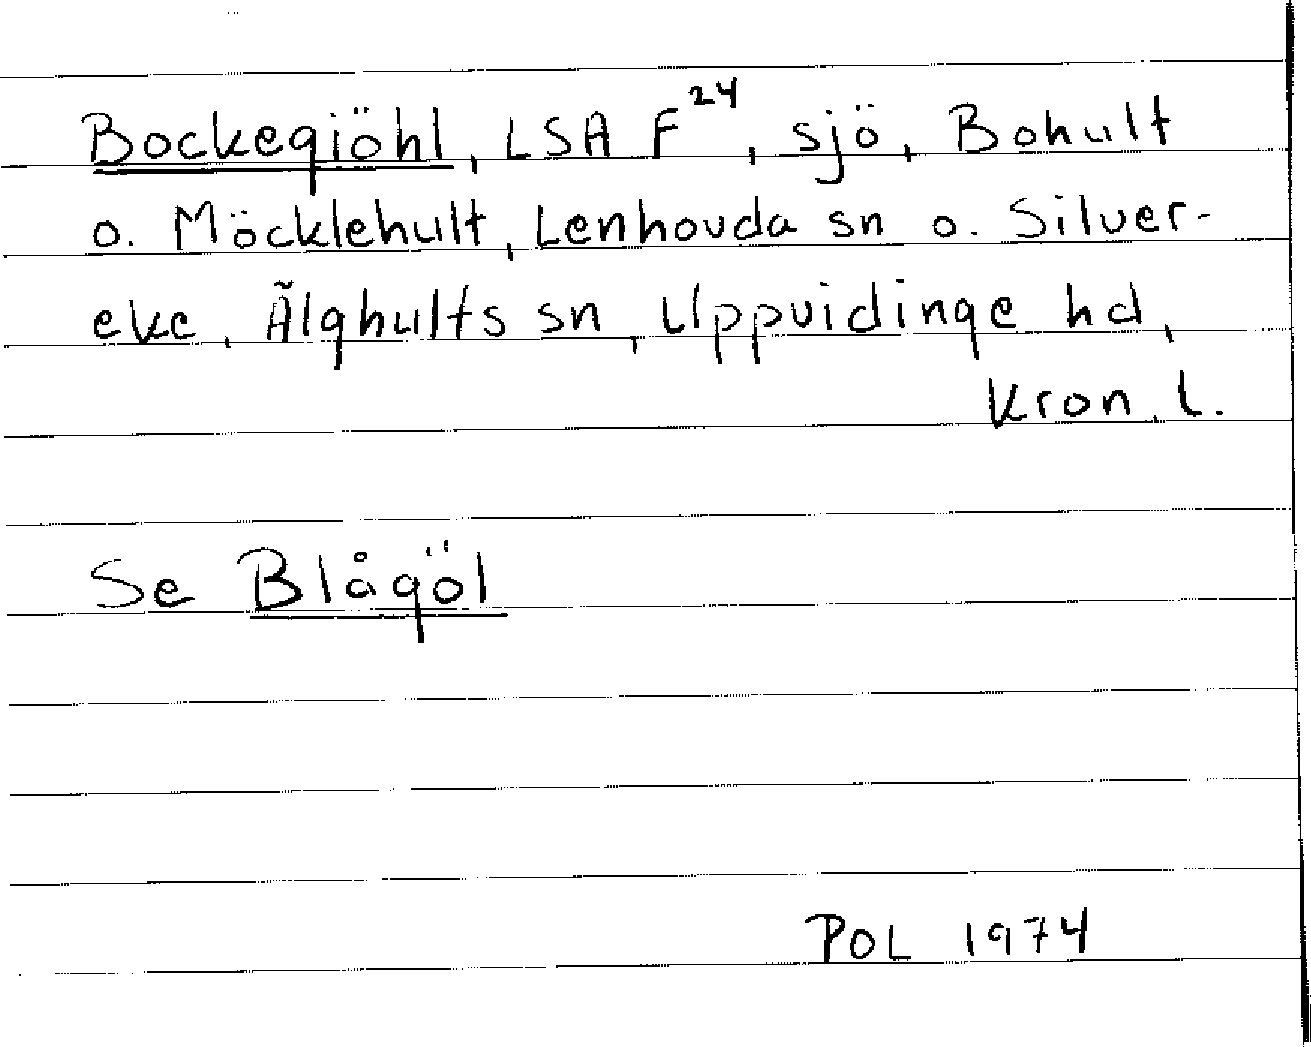 Bockegiöhl, LSA F24, sjö, Bohult
o. Möcklehult, Lenhovda sn o. Silver-
eke, Älghults sn, Uppvidinge hd,
Kron. l.
Se Blågöl
POL 1974